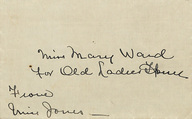 Miss Mary Ward
For Old Ladies Home
From
Miss Jones